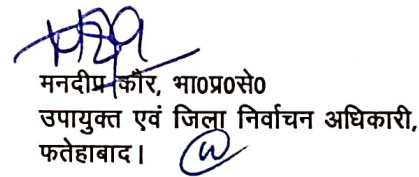 मनदीप कौर, भा0प्र0से0
उपायुक्त एवं जिला निर्वाचन अधिकारी,
फतेहाबाद।